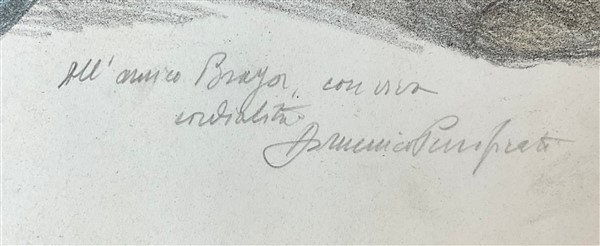 All' amico Brayer, con viva
cordialità.
Domenico Purificato